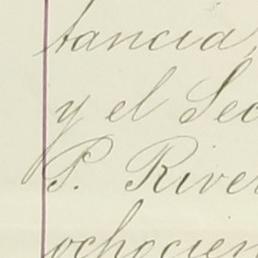 tancia,
y el Sec
P. River
ochocien